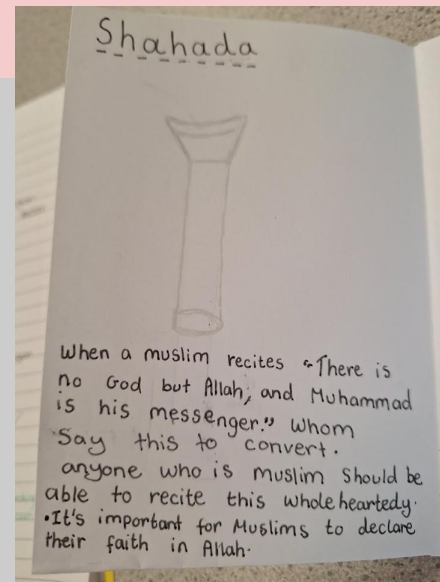 Shahada
When a muslim recites "There is
no God but Allah, and Muhammad
is his messenger." whom
Say this to convert.
anyone who is muslim should be
able to recite this wholeheartedy.
•It's important for Muslims to declare
their faith in Allah.